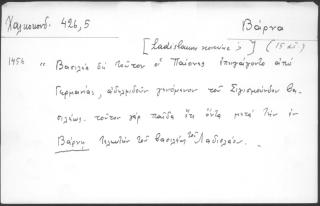 Χαλκοκονδ. 426,5 Βάρνα
[Ladislaus ] (15 αἰ)
1456 " Βασιλέα δὴ τοῦτον οἱ Παίονες ἐπηγάγοντο ἀπὸ
Γερμανίας, ἀδελφιδοῦν γενόμενον τοῦ Σιγισμούνδου βα-
σιλέως. τοῦτον γὰρ παῖδα ἔτι ὄντα μετὰ τὴν ἐν
Βάρνῃ τελευτὴν τοῦ βασιλέως τοῦ Λαδισλάου.